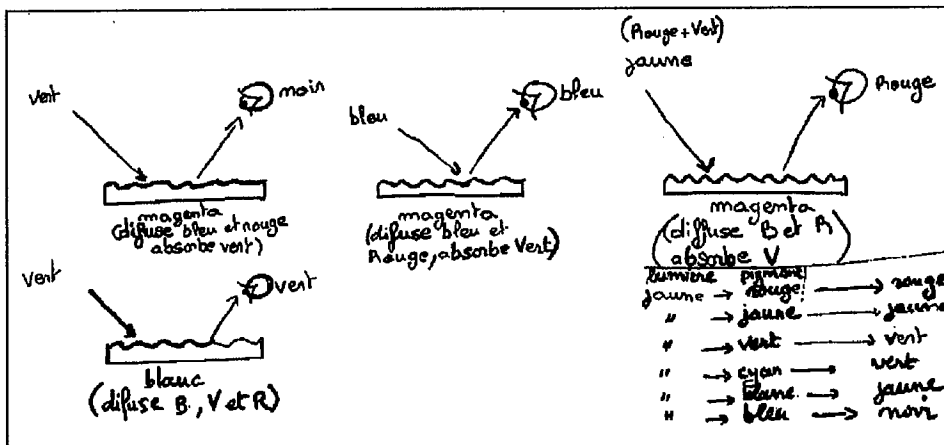 vert
noir
magenta
(difuse bleu et rouge
absorbe vert)
bleu
bleu
magenta
(difuse bleu et
Rouge, absorbe Vert)
(Rouge + Vert)
jaune
Rouge
magenta
(diffuse B et R
absorbe V)
Vert
vert
blanc
(difuse B., V et R)
lumière pigment
jaune → rouge → rouge
" → jaune → jaune
" → vert → vert
" → cyan → vert
" → blanc → jaune
" → bleu → noir